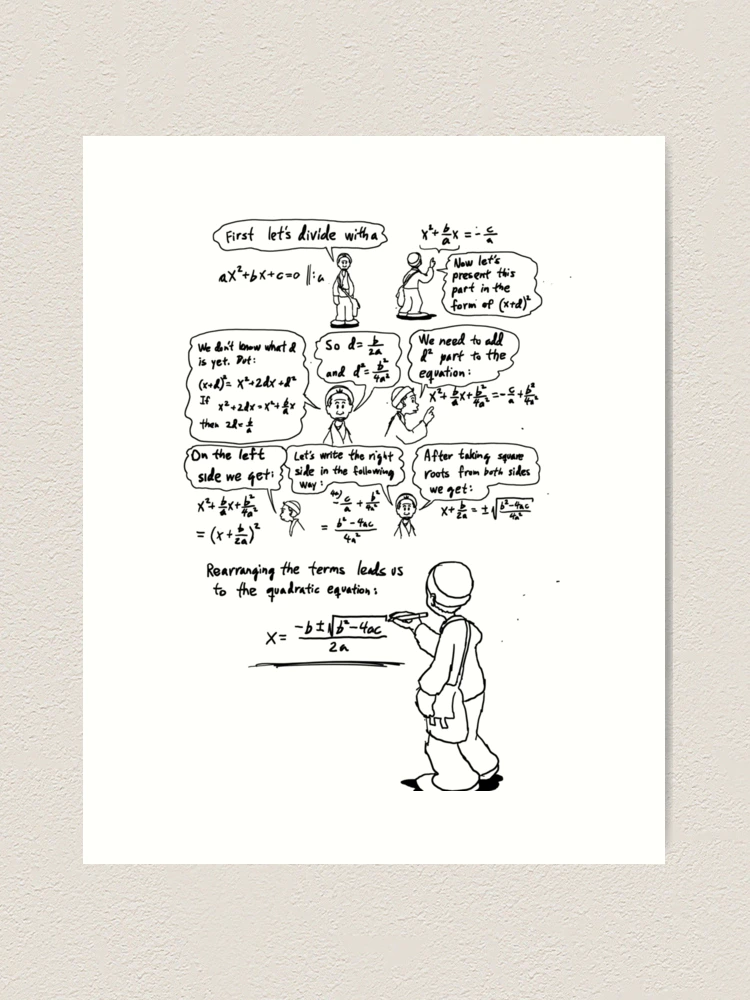 First let's divide with a
ax²+bx+c=0 ||:a
x²+b/a x = -c/a
Now let's
present this
part in the
form of (x+d)²
We don't know what d
is yet. But:
(x+d)² = x²+2dx+d²
If x²+2dx = x²+b/a x
then 2d = b/a
So d = b/2a
and d² = b²/4a²
We need to add
d² part to the
equation:
x²+b/a x+b²/4a² = -c/a+b²/4a²
On the left
side we get:
x²+b/a x+b²/4a²
= (x+b/2a)²
Let's write the right
side in the following
way:
4a) -c/a + b²/4a²
= b²-4ac/4a²
After taking square
roots from both sides
we get:
x+b/2a = ±√(b²-4ac/4a²)
Rearranging the terms leads us
to the quadratic equation:
x = -b±√(b²-4ac)/2a